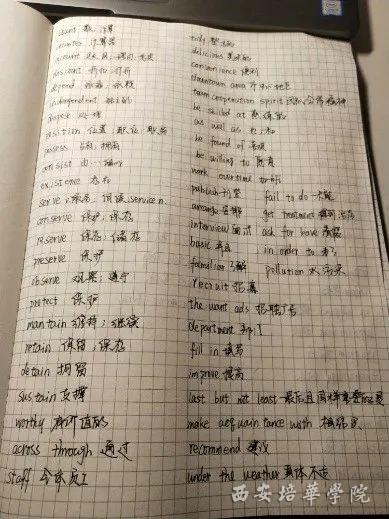 count 数,计算
counter 计算器
discount 折扣;打折
depend 依靠;依赖
independent 独立的
dispose 处理
position 位置;职位;职务
possess 占有;拥有
consist 由…组成
existence 存在
conserve 保护;保存
reserve 保存;储存
preserve 保护
observe 观察;遵守
protect 保护
maintain 维持;继续
retain 保留;保存
detain 拘留
sustain 支撑
worthy 有价值的
across through 通过
staff 全体员工
tidy 整洁的
delicious 美味的
convenience 便利
downtown area 市中心地区
team cooperation spirit 团队合作精神
be skilled at 熟练的
as well as 也;和
be found of 喜欢
be willing to 愿意
work overtime 加班
publish 刊登 fail to do 未能
arrange 安排 get treatment 得到治疗
interview 面试 ask for leave 请假
basic 基本 in order to 为了
familiar 了解 pollution 污染
recruit 招募
the want ads 招聘广告
department 部门
fill in 填写
improve 提高
last but not least 最后且同样重要的是
make acquaintance with 相结识
recommend 建议
under the weather 身体不适
西安培華學院